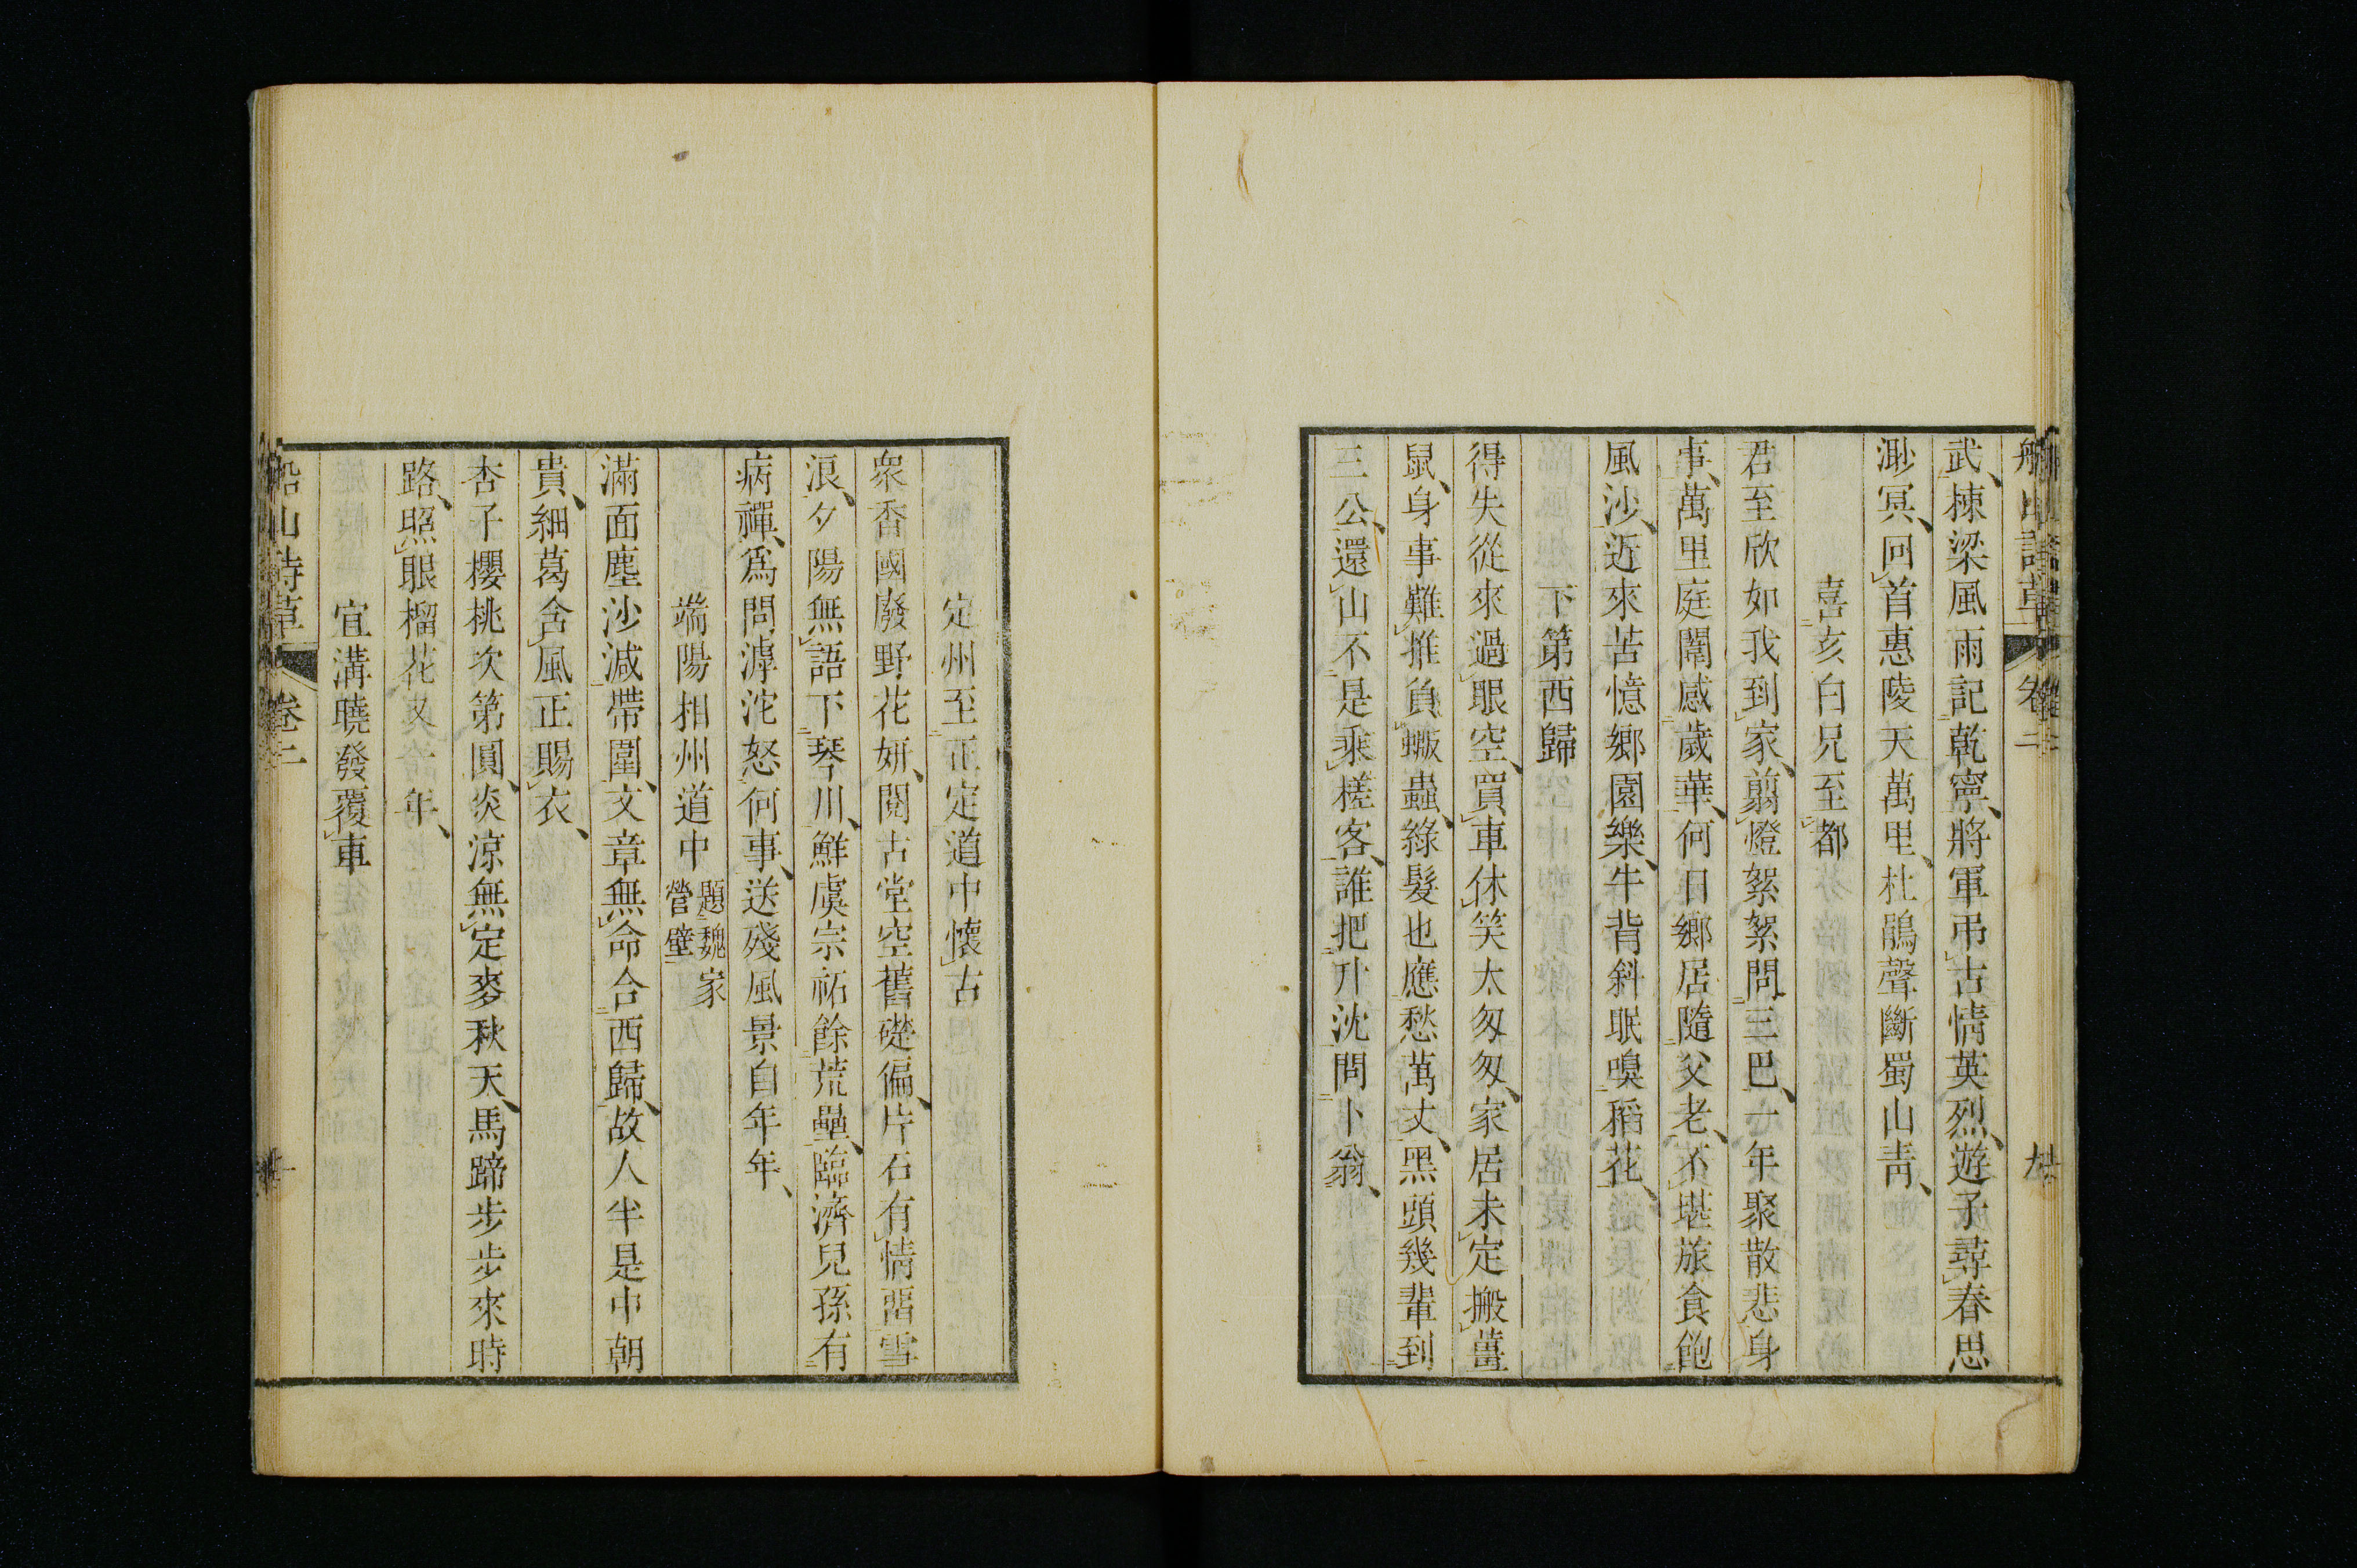 船山詩草 卷二
武棟梁風雨記乾寧將軍弔古情英烈遊子尋春思
渺冥回首惠陵天萬里杜鵑聲斷蜀山靑
喜亥白兄至都
君至欣如我到家翦燈絮絮問三巴一年聚散悲身
事萬里庭闈感歲華何日鄉居隨父老不堪旅食飽
風沙近來苦憶鄉園樂牛背斜眠嗅稻花
下第西歸
得失從來過眼空買車休笑太匆匆家居未定搬薑
鼠身事難推負蝂蟲綠髮也應愁萬丈黑頭幾輩到
三公還山不是乘槎客誰把升沈問卜翁
定州至正定道中懷古
衆香國廢野花妍閱古堂空舊礎偏片石有情畱雪
浪夕陽無語下琴川鮮虞宗祏餘荒壘臨濟兒孫有
病禪爲問滹沱怒何事送殘風景自年年
端陽相州道中題魏家營壁
滿面塵沙減帶圍文章無命合西歸故人半是中朝
貴細葛含風正賜衣
杏子櫻桃次第圓炎涼無定麥秋天馬蹄步步來時
路照眼榴花又一年
宜溝曉發覆車
船山詩草 卷二